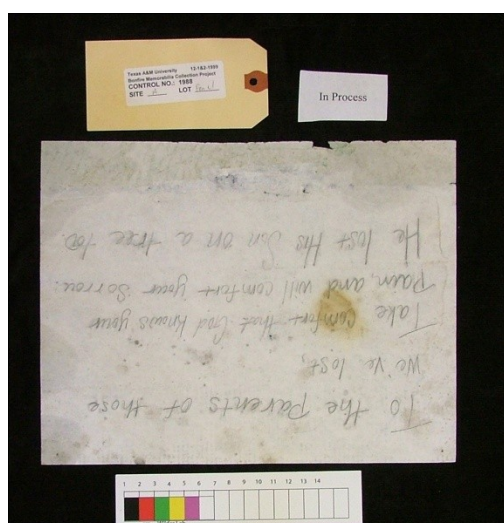 Texas A&M University 12-1&2-1999
Bonfire Memorabilia Collection Project
CONTROL NO.: 1988
SITE A LOT
In Process
To the Parents of those
We've lost,
Take comfort that God knows your
Pain, and will comfort your sorrow.
He lost His Son on a tree too.
1 2 3 4 5 6 7 8 9 10 11 12 13 14